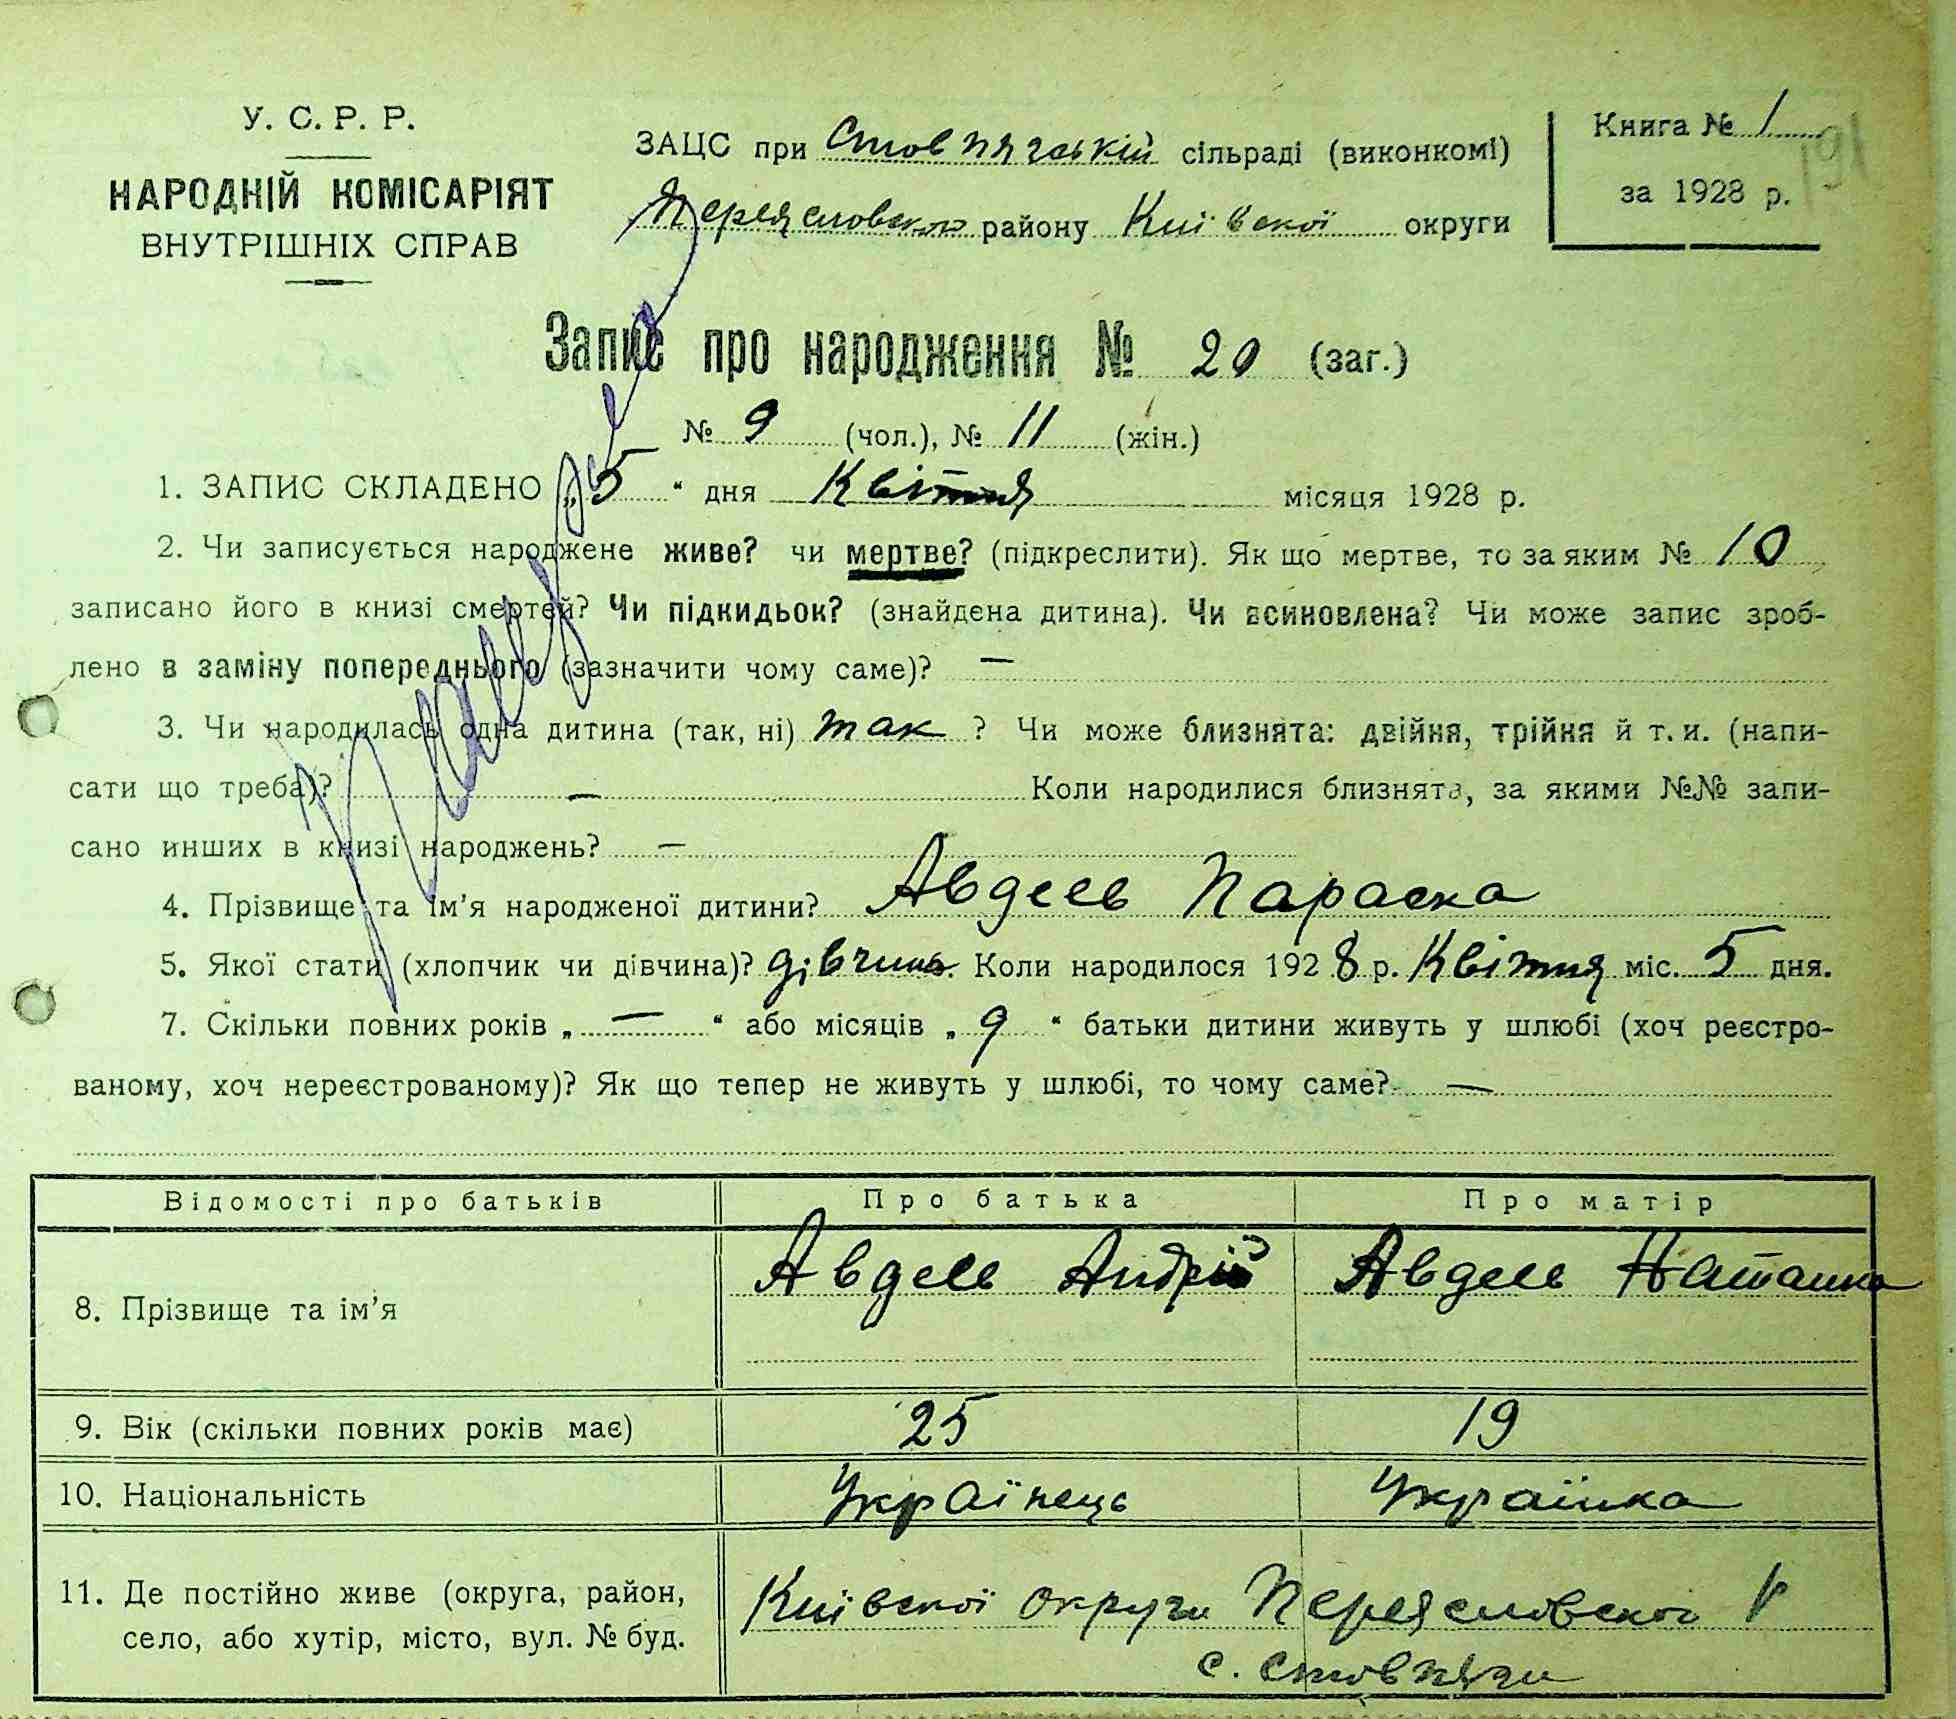 У. С. Р. Р.
НАРОДНІЙ КОМІСАРІЯТ
ВНУТРІШНІХ СПРАВ
ЗАЦС при Стовпягській сільраді (виконкомі)
Переясловського району Київської округи
Книга № 1
за 1928 р.
191
Запис про народження № 20 (заг.)
№ 9 (чол.), № 11 (жін.)
1. ЗАПИС СКЛАДЕНО „5“ дня Квітня місяця 1928 р.
2. Чи записується народжене живе? чи мертве? (підкреслити). Як що мертве, то за яким № 10
записано його в книзі смертей? Чи підкидьок? (знайдена дитина). Чи всиновлена? Чи може запис зроб-
лено в заміну попереднього (зазначити чому саме)? —
3. Чи народилась одна дитина (так, ні) так ? Чи може близнята: двійня, трійня й т. и. (напи-
сати що треба)? — Коли народилися близнята, за якими №№ запи-
сано инших в книзі народжень? —
4. Прізвище та ім’я народженої дитини? Авдеев Параска
5. Якої стати (хлопчик чи дівчина)? дівчина. Коли народилося 1928 р. Квітня міс. 5 дня.
7. Скільки повних років „ — “ або місяців „ 9 “ батьки дитини живуть у шлюбі (хоч реєстро-
ваному, хоч нереєстрованому)? Як що тепер не живуть у шлюбі, то чому саме? —
Відомості про батьків Про батька Про матір
8. Прізвище та ім’я Авдеев Андрій Авдеев Наташка
9. Вік (скільки повних років має) 25 19
10. Національність Українець Українка
11. Де постійно живе (округа, район, Київської округи Переясловского р
село, або хутір, місто, вул. № буд. с. Стовпяги